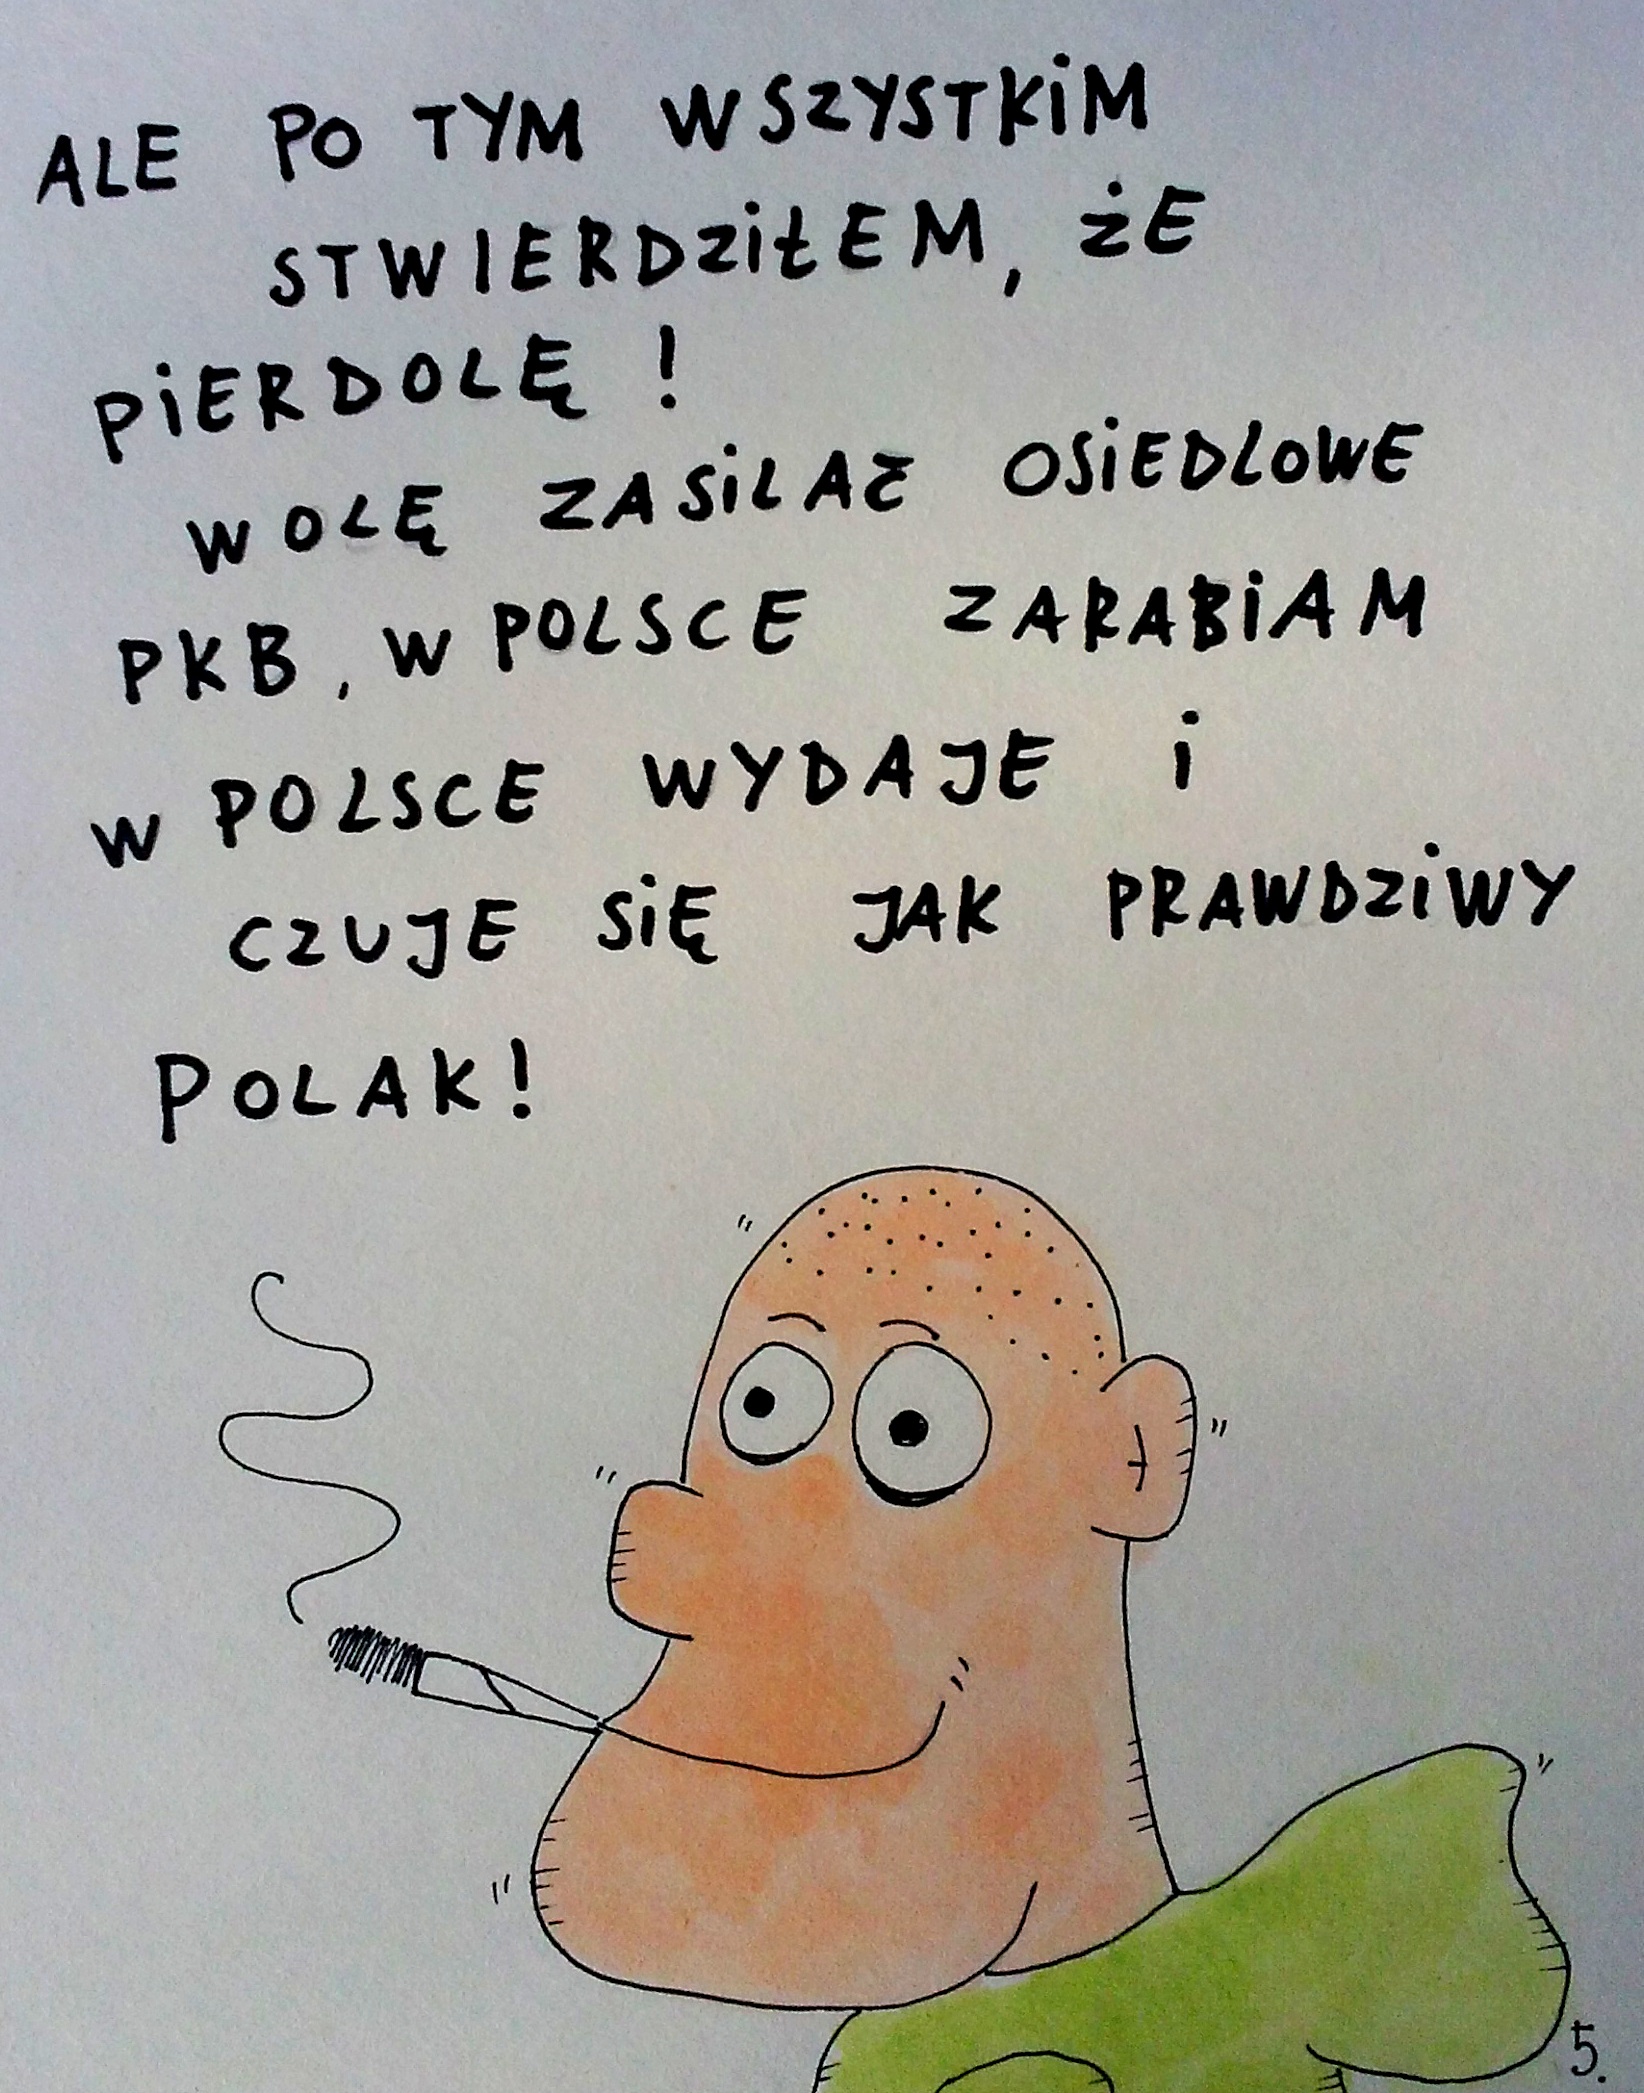 ALE PO TYM WSZYSTKiM
STWIERDZiŁEM, ŻE
PiERDOLĘ !
WOLĘ ZASiLAĆ OSiEDLOWE
PKB, W POLSCE ZARABiAM
W POLSCE WYDAJE i
CZUJE SiĘ JAK PRAWDZiWY
POLAK!
5.